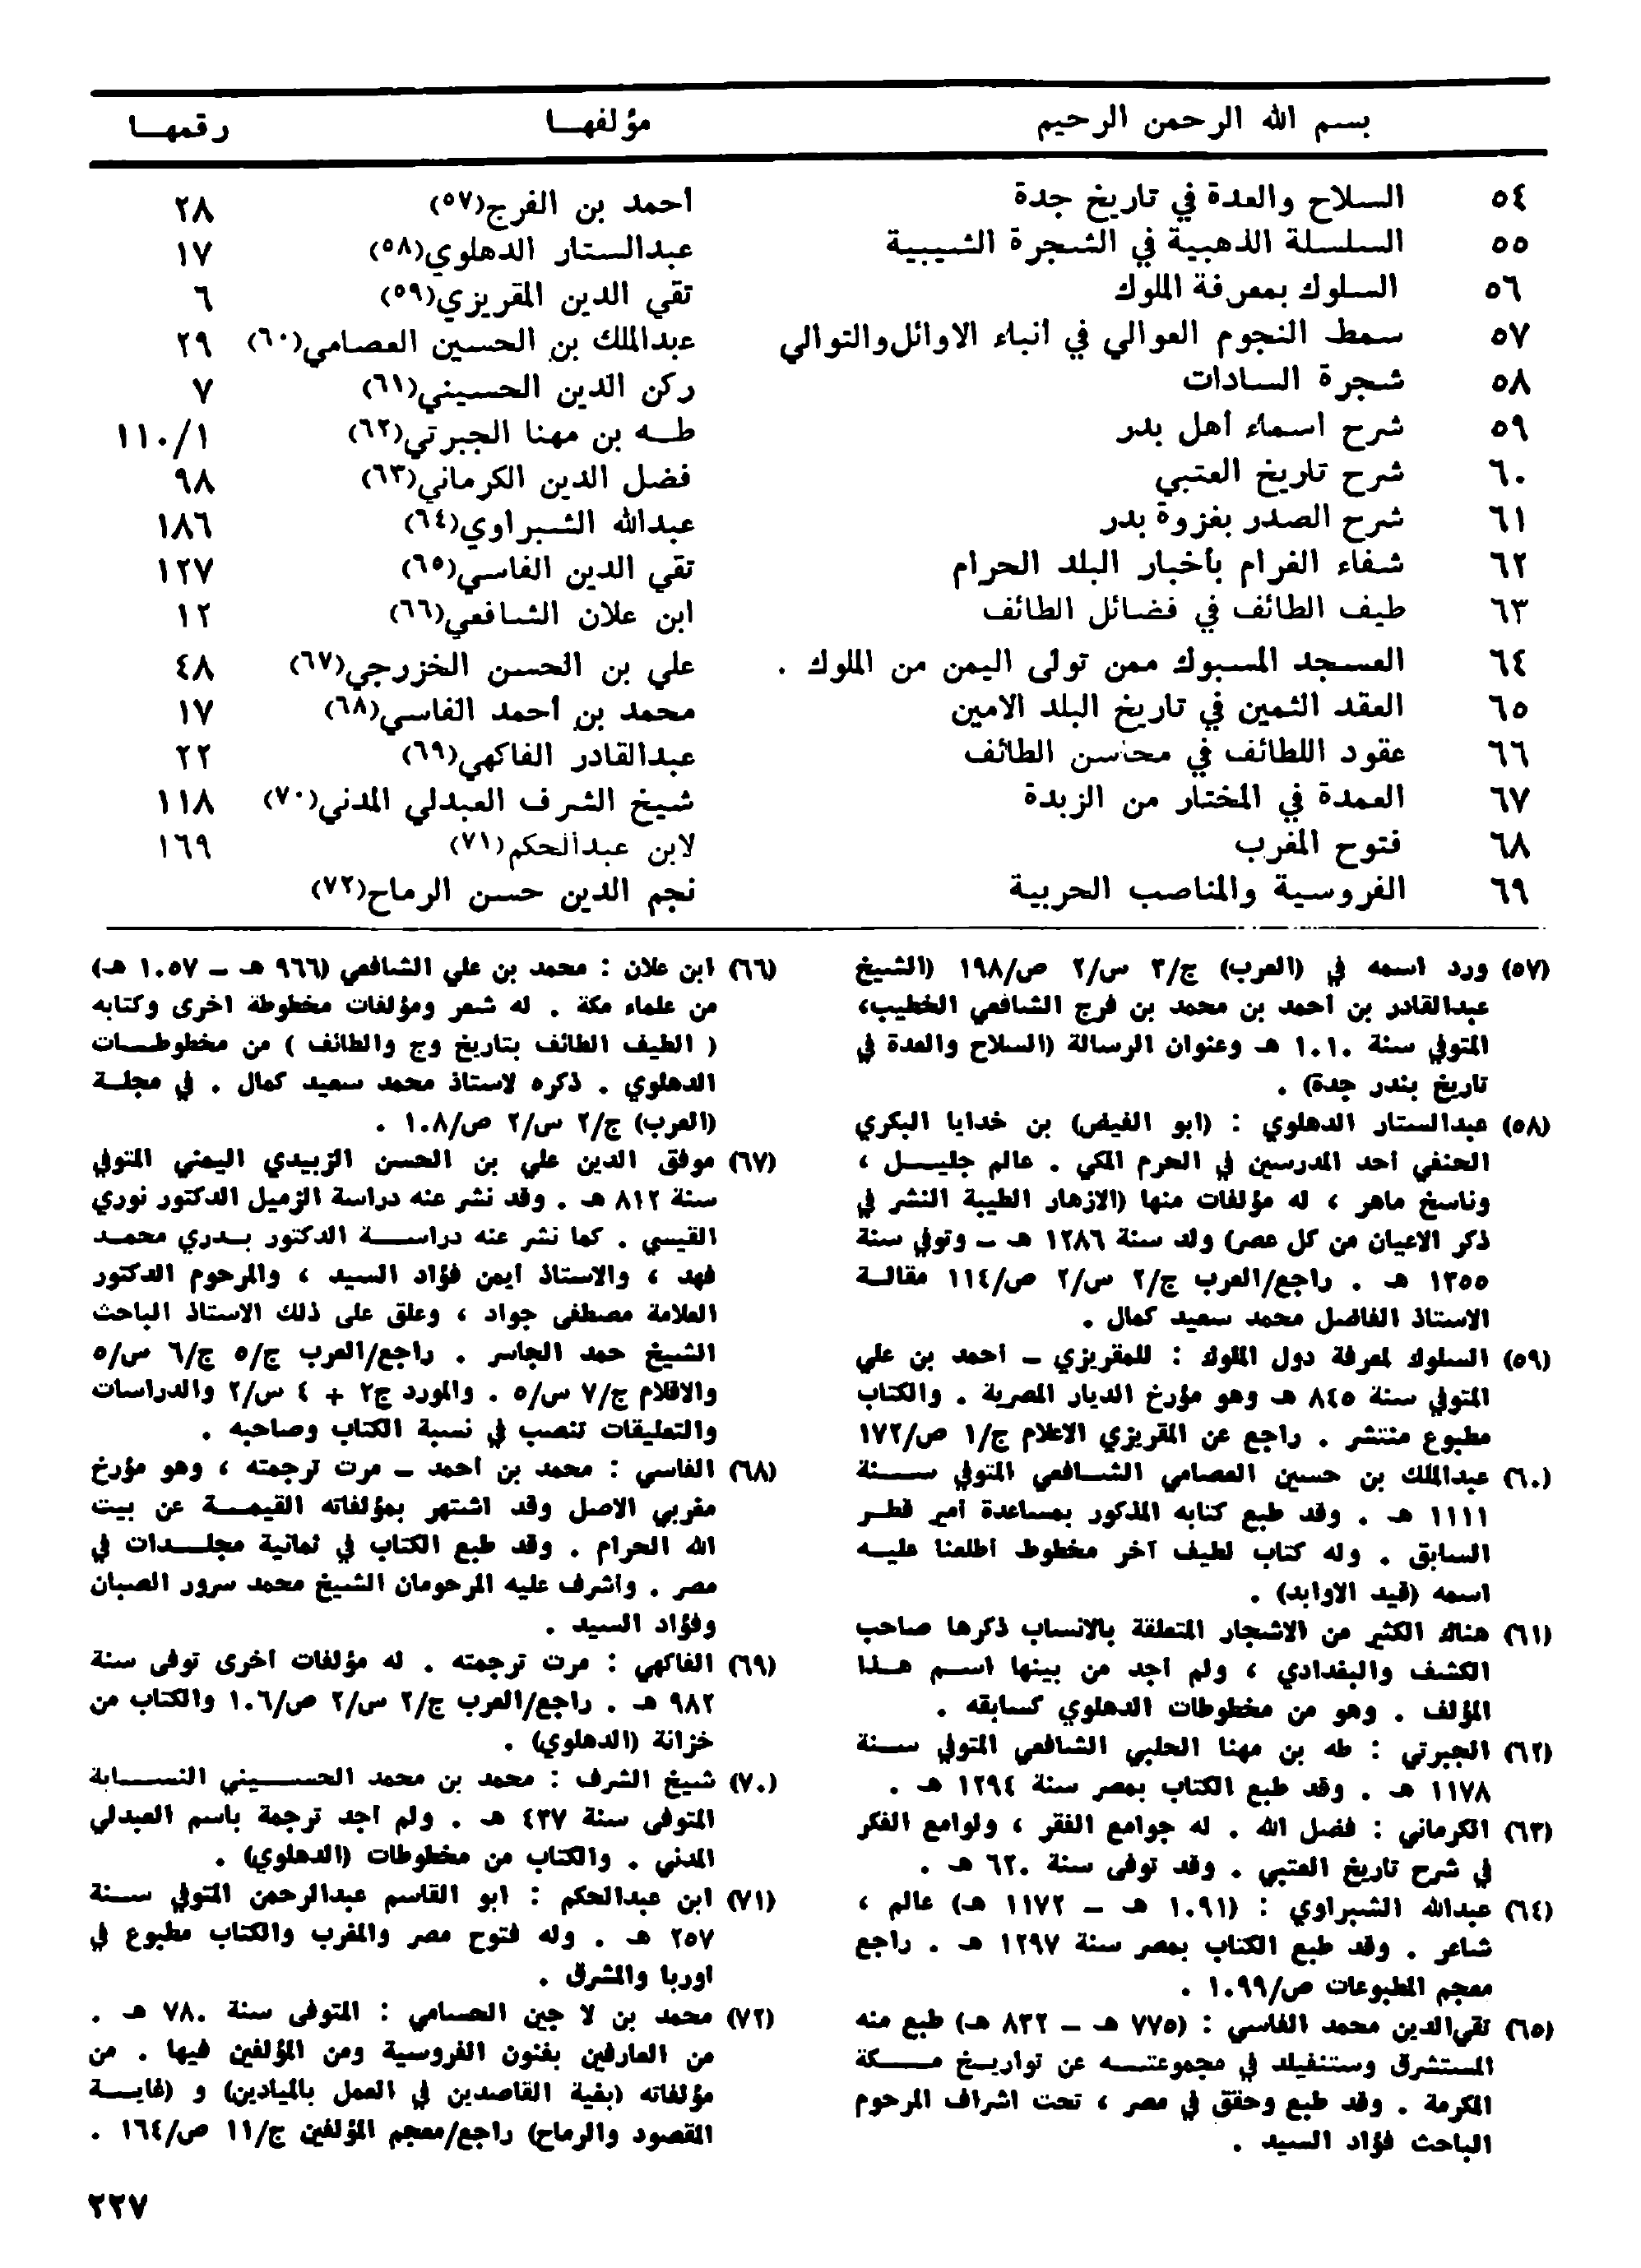 بسم الله الرحمن الرحيم مؤلفهـا رقمهـا
٥٤ السلاح والعدة في تاريخ جدة احمد بن الفرج(٥٧) ٢٨
٥٥ السلسلة الذهبية في الشجرة الشيبية عبدالستار الدهلوي(٥٨) ١٧
٥٦ السلوك بمعرفة الملوك تقي الدين المقريزي(٥٩) ٦
٥٧ سمط النجوم العوالي في انباء الاوائل والتوالي عبدالملك بن الحسين العصامي(٦٠) ٢٩
٥٨ شجرة السادات ركن الدين الحسيني(٦١) ٧
٥٩ شرح اسماء أهل بدر طـه بن مهنا الجبرتي(٦٢) ١١٠/١
٦٠ شرح تاريخ العتبي فضل الدين الكرماني(٦٣) ٩٨
٦١ شرح الصدر بغزوة بدر عبدالله الشبراوي(٦٤) ١٨٦
٦٢ شفاء الغرام بأخبار البلد الحرام تقي الدين الفاسي(٦٥) ١٢٧
٦٣ طيف الطائف في فضائل الطائف ابن علان الشافعي(٦٦) ١٢
٦٤ العسجد المسبوك ممن تولى اليمن من الملوك . علي بن الحسن الخزرجي(٦٧) ٤٨
٦٥ العقد الثمين في تاريخ البلد الامين محمد بن أحمد الفاسي(٦٨) ١٧
٦٦ عقود اللطائف في محاسن الطائف عبدالقادر الفاكهي(٦٩) ٢٢
٦٧ العمدة في المختار من الزبدة شيخ الشرف العبدلي المدني(٧٠) ١١٨
٦٨ فتوح المغرب لابن عبدالحكم(٧١) ١٦٩
٦٩ الفروسية والمناصب الحربية نجم الدين حسن الرماح(٧٢)
(٥٧) ورد اسمه في (العرب) ج/٣ س/٢ ص/١٩٨ (الشيخ
عبدالقادر بن أحمد بن محمد بن فرج الشافعي الخطيب،
المتوفي سنة ١٠١٠ هـ وعنوان الرسالة (السلاح والعدة في
تاريخ بندر جدة) .
(٥٨) عبدالستار الدهلوي : (ابو الفيض) بن خدايا البكري
الحنفي أحد المدرسين في الحرم المكي . عالم جليـل ،
وناسخ ماهر ، له مؤلفات منها (الازهار الطيبة النشر في
ذكر الاعيان من كل عصر) ولد سنة ١٢٨٦ هـ – وتوفي سنة
١٣٥٥ هـ . راجع/العرب ج/٢ س/٢ ص/١١٤ مقالـة
الاستاذ الفاضل محمد سعيد كمال .
(٥٩) السلوك لمعرفة دول الملوك : للمقريزي – أحمد بن علي
المتوفي سنة ٨٤٥ هـ وهو مؤرخ الديار المصرية . والكتاب
مطبوع منتشر . راجع عن المقريزي الاعلام ج/١ ص/١٧٢
(٦٠) عبدالملك بن حسين العصامي الشـافعي المتوفي سـنة
١١١١ هـ . وقد طبع كتابه المذكور بمساعدة أمير قطـر
السابق . وله كتاب لطيف آخر مخطوط أطلعنا عليـه
اسمه (قيد الاوابد) .
(٦١) هناك الكثير من الاشجار المتعلقة بالانساب ذكرها صاحب
الكشف والبغدادي ، ولم أجد من بينها اسـم هـذا
المؤلف . وهو من مخطوطات الدهلوي كسابقه .
(٦٢) الجبرتي : طه بن مهنا الحلبي الشافعي المتوفي سـنة
١١٧٨ هـ . وقد طبع الكتاب بمصر سنة ١٢٩٤ هـ .
(٦٣) الكرماني : فضل الله . له جوامع الفقر ، ولوامع الفكر
في شرح تاريخ العتبي . وقد توفى سنة ٦٢٠ هـ .
(٦٤) عبدالله الشبراوي : (١٠٩١ هـ – ١١٧٢ هـ) عالم ،
شاعر . وقد طبع الكتاب بمصر سنة ١٢٩٧ هـ . راجع
معجم المطبوعات ص/١٠٩٩ .
(٦٥) تقي الدين محمد الفاسي : (٧٧٥ هـ – ٨٣٢ هـ) طبع منه
المستشرق وستنفيلد في مجموعتـه عن تواريـخ مـكة
المكرمة . وقد طبع وحقق في مصر ، تحت اشراف المرحوم
الباحث فؤاد السيد .
(٦٦) ابن علان : محمد بن علي الشافعي (٩٦٦ هـ – ١٠٥٧ هـ)
من علماء مكة . له شعر ومؤلفات مخطوطة اخرى وكتابه
( الطيف الطائف بتاريخ وج والطائف ) من مخطوطـات
الدهلوي . ذكره لاستاذ محمد سعيد كمال . في مجلـة
(العرب) ج/٢ س/٢ ص/١٠٨ .
(٦٧) موفق الدين علي بن الحسن الزبيدي اليمني المتوفي
سنة ٨١٢ هـ . وقد نشر عنه دراسة الزميل الدكتور نوري
القيسي . كما نشر عنه دراسـة الدكتور بـدري محمـد
فهد ، والاستاذ أيمن فؤاد السيد ، والمرحوم الدكتور
العلامة مصطفى جواد ، وعلق على ذلك الاستاذ الباحث
الشيخ حمد الجاسر . راجع/العرب ج/٥ ج/٦ س/٥
والاقلام ج/٧ س/٥ . والمورد ج٢ + ٤ س/٢ والدراسات
والتعليقات تنصب في نسبة الكتاب وصاحبه .
(٦٨) الفاسي : محمد بن أحمد – مرت ترجمته ، وهو مؤرخ
مغربي الاصل وقد اشتهر بمؤلفاته القيمـة عن بيت
الله الحرام . وقد طبع الكتاب في ثمانية مجلـدات في
مصر . واشرف عليه المرحومان الشيخ محمد سرور الصبان
وفؤاد السيد .
(٦٩) الفاكهي : مرت ترجمته . له مؤلفات أخرى توفى سنة
٩٨٢ هـ . راجع/العرب ج/٢ س/٢ ص/١٠٦ والكتاب من
خزانة (الدهلوي) .
(٧٠) شيخ الشرف : محمد بن محمد الحسـيني النسـابة
المتوفى سنة ٤٣٧ هـ . ولم أجد ترجمة باسم العبدلي
المدني . والكتاب من مخطوطات (الدهلوي) .
(٧١) ابن عبدالحكم : ابو القاسم عبدالرحمن المتوفي سـنة
٢٥٧ هـ . وله فتوح مصر والمغرب والكتاب مطبوع في
اوربا والمشرق .
(٧٢) محمد بن لا جين الحسامي : المتوفى سنة ٧٨٠ هـ .
من العارفين بفنون الفروسية ومن المؤلفين فيها . من
مؤلفاته (بغية القاصدين في العمل بالميادين) و (غايـة
المقصود والرماح) راجع/معجم المؤلفين ج/١١ ص/١٦٤ .
٢٢٧